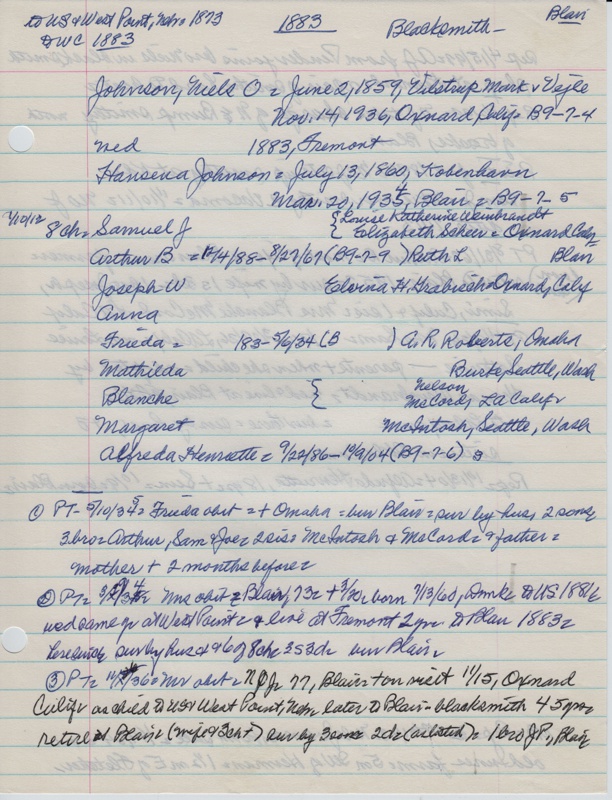 to US & West Point, Nebr = 1873 1883 Blacksmith - Blair
DWC 1883
Johnson, Niels O = June 2, 1859, Vilstrup Mark v Vejle
Nov. 14, 1936, Oxnard, Calif = B9-7-4
wed 1883, Fremont
Hansena Johnson = July 13, 1860, Kobenhavn
Mar. 20, 1934, Blair = B9-7-5
8ch = Samuel J { Louise Katherine Weinbrandt
Elizabeth = Oxnard Calif
Arthur B = 12/4/88 - 8/27/67 (B9-7-9) Ruth L Blair
Joseph W Elvina H. Grabisch = Oxnard, Calif
Anna
Frieda = 183 - 5/6/34 (B ) A. R. Roberts, Omaha
Mathilda Burke, Seattle, Wash
Blanche { Nelson
McCord, LA Calif
Margaret McIntosh, Seattle, Wash
Alfreda Henriette = 9/22/86 - 10/9/04 (B9-7-6)
① PT - 5/10/34 = Frieda obit = + Omaha = bur Blair = sur by hus, 2 sons
3 bro = Arthur, Sam & Joe = 2 sis = McIntosh & McCord = & father =
mother + 2 months before =
② PT = Mrs obit = Blair, 73 = + 3/20 = born 7/13/60, Dmk = to US 1881 &
wed same yr at West Point = & live at Fremont 2 yr = to Blair 1883 =
sur by hus & 6 of 8 ch = 3s 3d = bur Blair =
③ PT = Mr obit = 77, Blair = + on visit 11/15, Oxnard
Calif = as child to US & West Point, Nebr = later to Blair = blacksmith 45 yrs
retire at Blair = (wife & 3 ch +) sur by 3 sons 2 d = = 1 bro J P., Blair